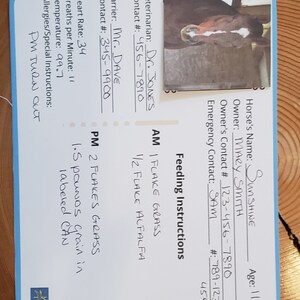 Horse's Name: SUNSHINE Age: 11
Owner: MARY SMITH
Owner's Contact # 123-456-7890
Emergency Contact: SAM #: 789-12
456
Veterinarian: Dr. JONES
Contact #: 456-7890
arrier: Mr. DAVE
ontact #: 345-9900
eart Rate: 34
reaths per Minute: 11
emperature: 99.7
llergies/Special Instructions:
PM TURN OUT
Feeding Instructions
AM
1 FLAKE GRASS
1/2 FLAKE ALFALFA
PM
2 FLAKES GRASS
1.5 POUNDS GRAIN in
labeled CAN